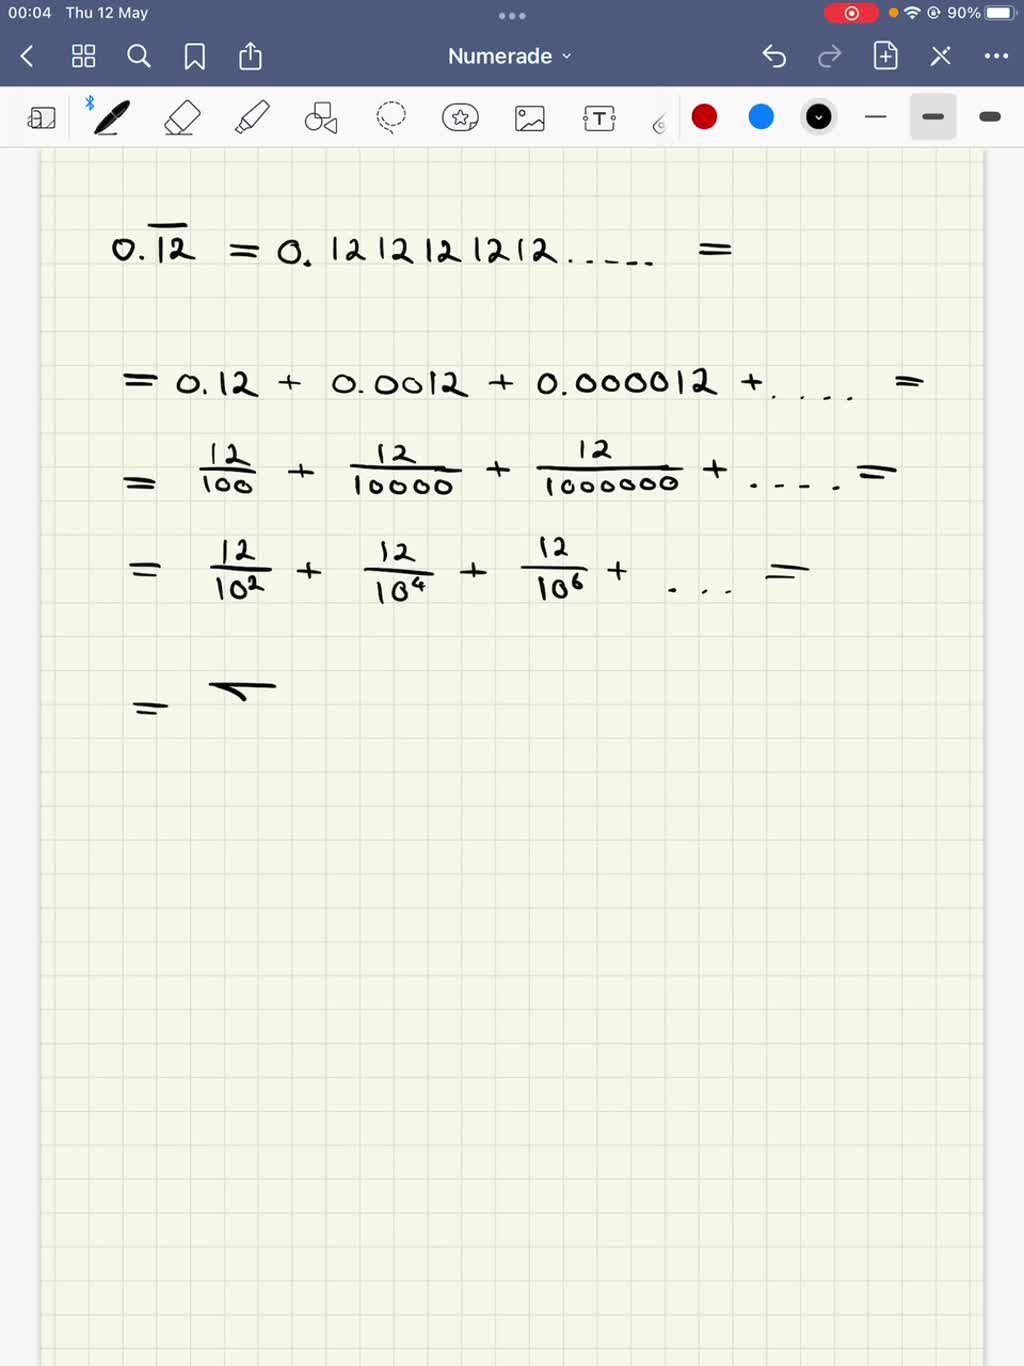 00:04 Thu 12 May 90%
Numerade
T
0.1̅2̅ = 0.1212121212..... =
= 0.12 + 0.0012 + 0.000012 + .... =
= 12/100 + 12/10000 + 12/1000000 + .... =
= 12/10² + 12/10⁴ + 12/10⁶ + ... =
=